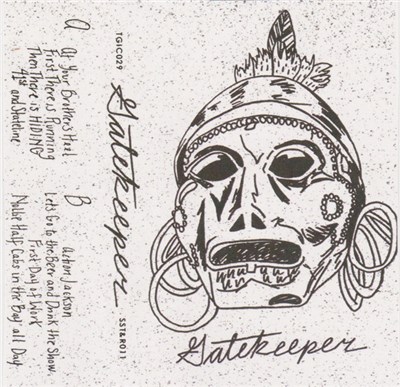 A
At Your Brothers Heel.
First There is Running
Then There is HIDING
41st and Stateline
B
Action Jackson
Lets Go to the Beer and Drink the Show.
First Day of Work
Half Cabs in the all Day
TGIC029
Gatekeeper
SST&R011
Gatekeeper